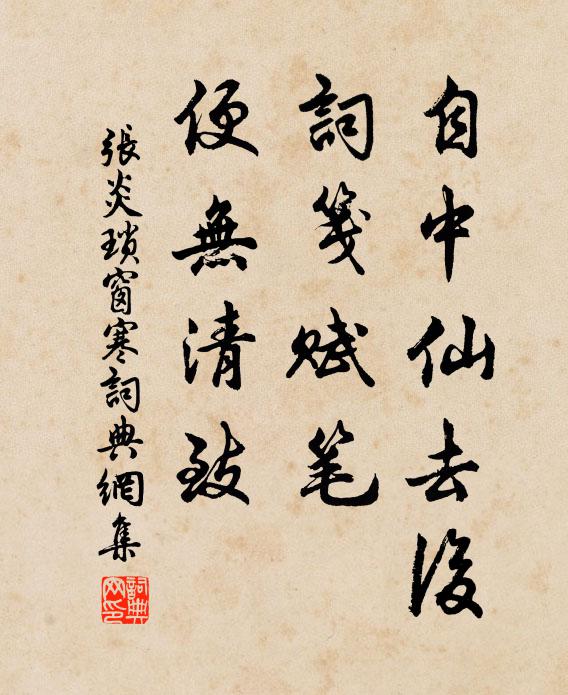 自中仙去後
詞箋赋笔
便無清致
張炎瑣窗寒詞典網集
詞典网印